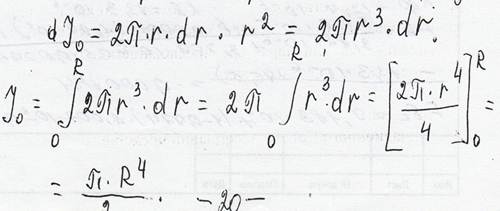 dJ₀ = 2π·r·dr·r² = 2πr³·dr.
J₀ = ∫₀ᴿ 2πr³·dr = 2π ∫₀ᴿ r³·dr = [2π·r⁴/4]₀ᴿ =
= π·R⁴/2. -20-